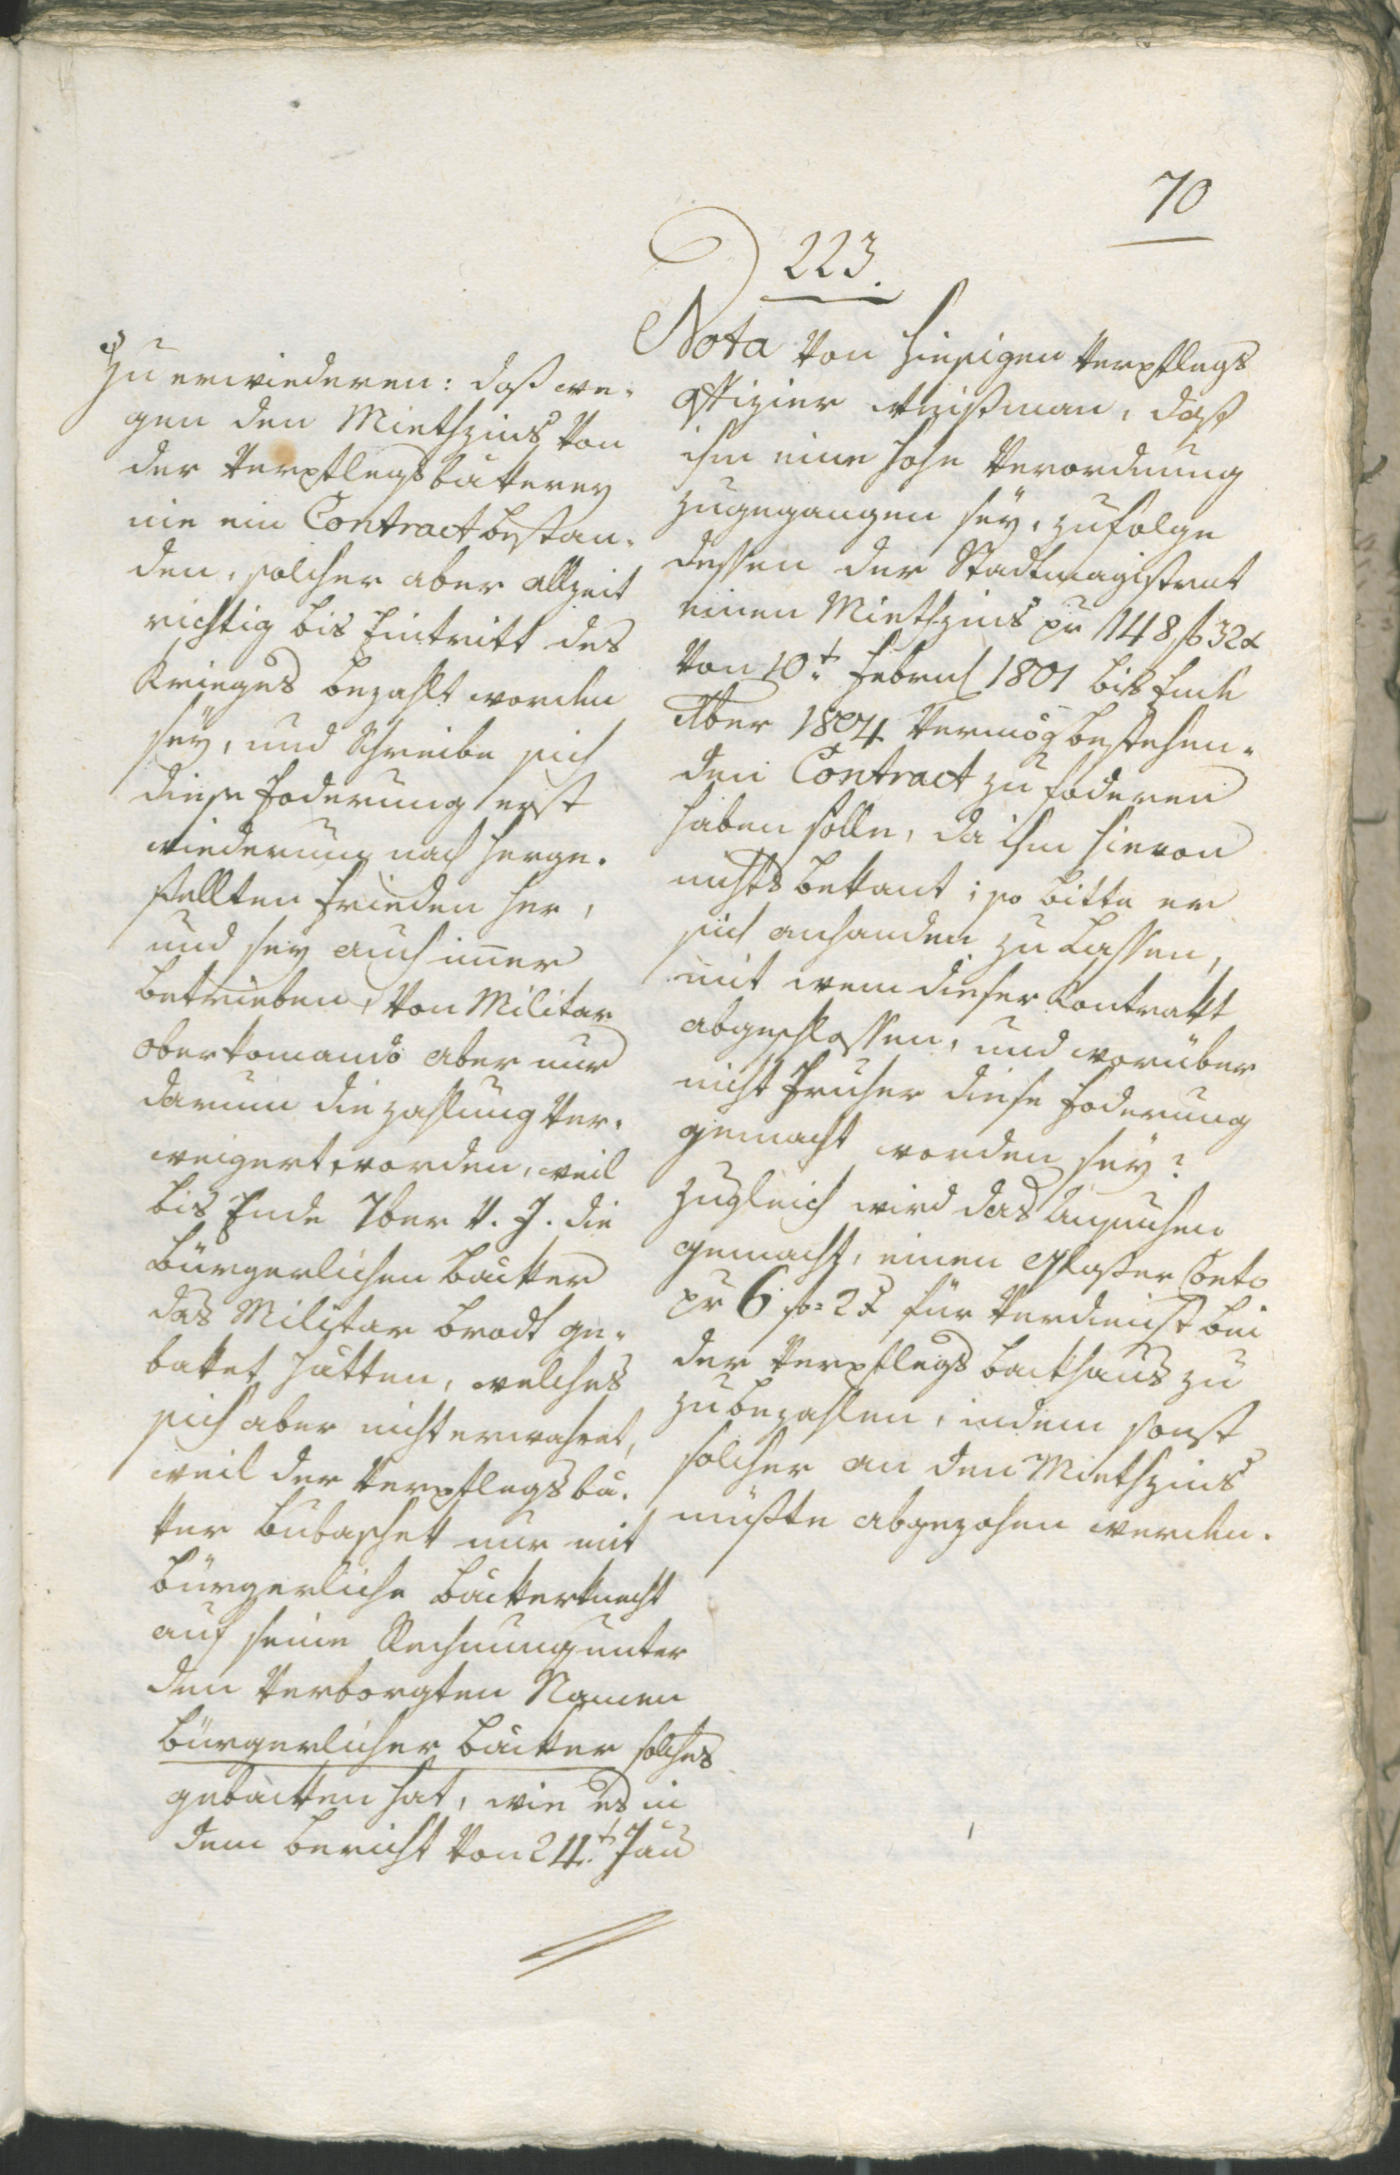 70
223.
Nota von hiesigen Verpflegs
Offizier Weißman, daß
ihm eine hohe Verordnung
zugegangen seÿ, zufolge
dessen der Stadtmagistrat
einen Miethzins pr 148 f 32 x
von 10t. Februl 1801 bis Ende
8ber 1804 vermög bestehen-
den Contract zu foderen
haben solle, da ihm hievon
nichts bekant; so bitte er
sich anhanden zu lassen,
mit wem dieser Kontrakt
abgeschlossen, und worüber
nicht fruher diese Foderung
gemacht worden seÿ?
Zugleich wird das Ansuchen
gemacht, einen Glaßer Conto
pr 6 f = 2 x für Verdienst bei
der Verpflegs Backhaus zu
zu bezahlen, indem sonst
solcher an den Miethzins
müßte abgezohen werden.
Zu erwiederen: daß we-
gen den Miethzins von
der Verpflegsbäkerey
nie ein Contract bestan-
den, solcher aber allzeit
richtig bis Eintritt des
Krieges bezahlt worden
seÿ, und schreibe sich
diese Foderung erst
wiederum nach herge-
stellten Frieden her,
und sey auch immer
betrieben, von Militar
oberkomando aber nur
darum die Zahlung ver-
weigert worden, weil
bis Ende 7ber v. J. die
bürgerlichen Bäcker
das Militar Brodt ge-
baket hätten, welches
sich aber nicht erwahret,
weil der Verpflegsbä-
ker nur mit
bürgerliche Bäckerknecht
auf seine Rechnung unter
den verborgten Namen
bürgerlicher Bäcker solches
gebacken hat, wie es in
dem Bericht von 24t. Jän